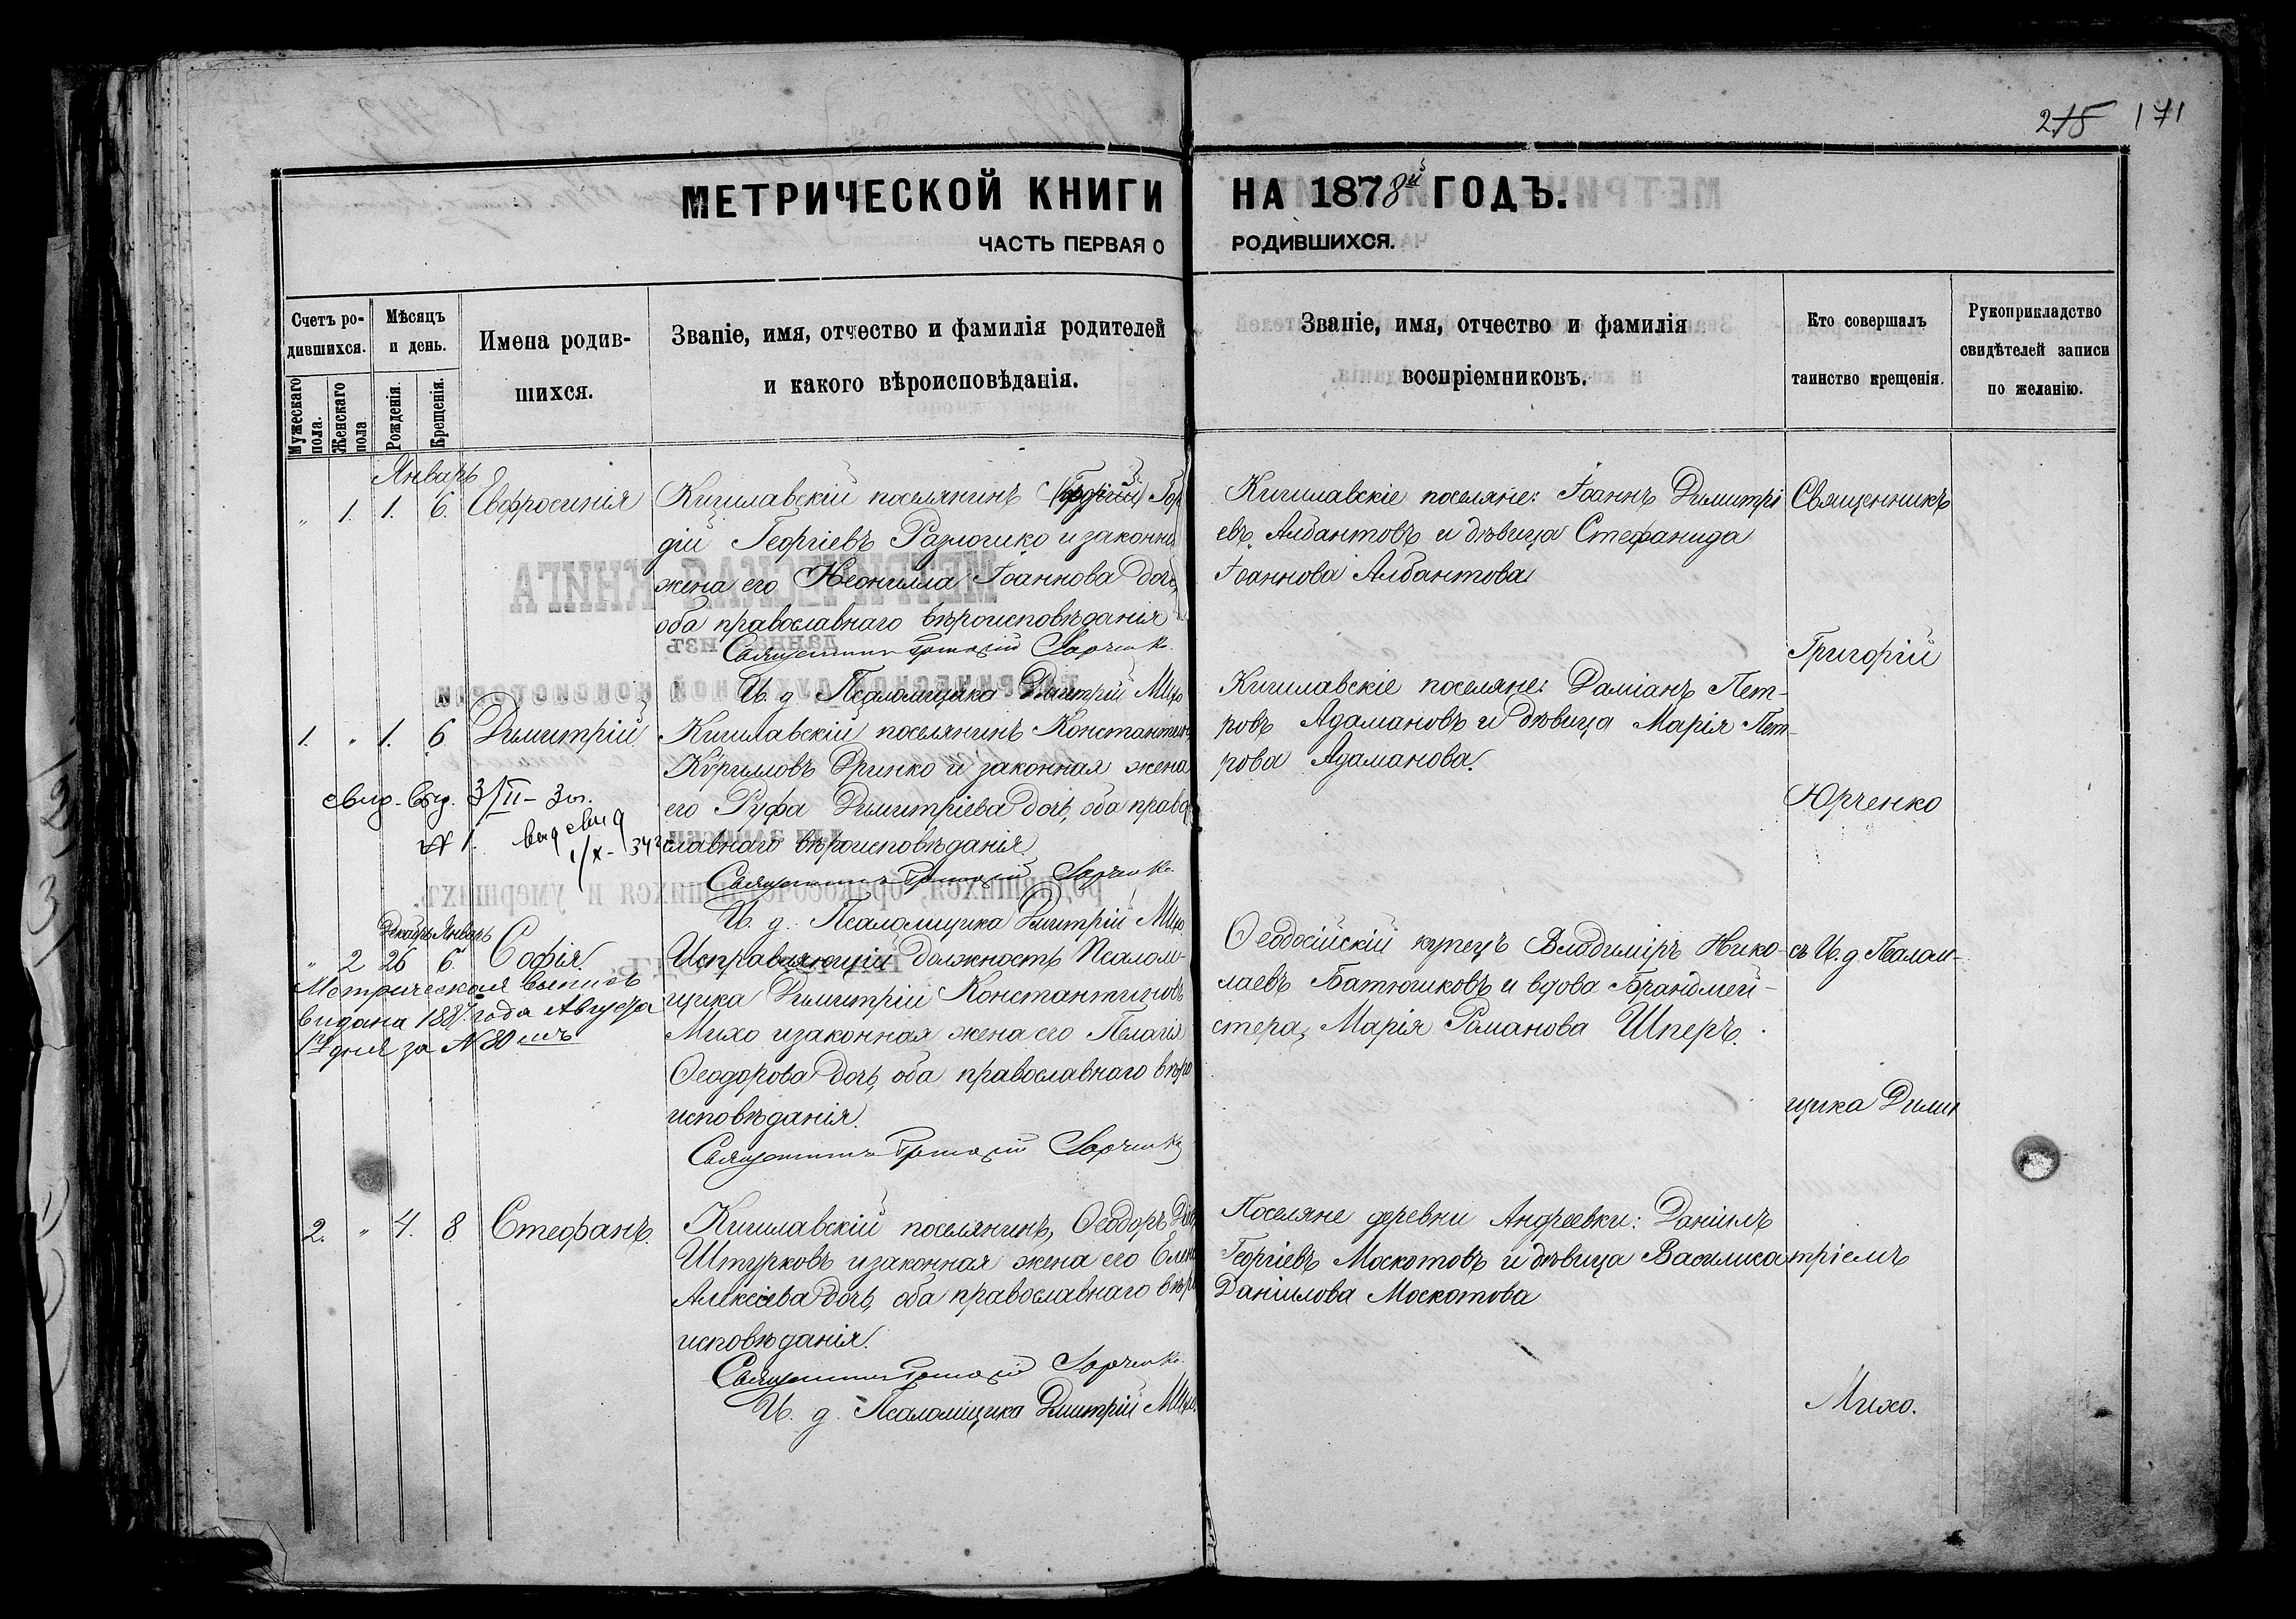 275 171
МЕТРИЧЕСКОЙ КНИГИ НА 1878й ГОДЪ.
ЧАСТЬ ПЕРВАЯ О РОДИВШИХСЯ.
Счетъ ро-
дившихся.
Мужескаго
пола.
Женскаго
пола
Мѣсяцъ
и день.
Рожденія.
Крещенія.
Имена родив-
шихся.
Званіе, имя, отчество и фамилія родителей
и какого вѣроисповѣданія.
Званіе, имя, отчество и фамилія
воспріемниковъ.
Кто совершалъ
таинство крещенія.
Рукоприкладство
свидѣтелей записи
по желанію.
Январь
" 1. 1. 6. Евфросинія
Кишлавскій поселянинъ Гор
дій Георгіевъ Разлогико и законна
жена его Неонилла Іоаннова дочь,
оба православнаго вѣроисповѣданія
Священникъ Григорій Юрченко
И. д. Псаломщика Димитрій Михо
Кишлавскіе поселяне: Іоаннъ Димитрі
евъ Албантовъ и дѣвица Стефанида
Іоаннова Албантова
1. " 1. 6 Димитрій
Кишлавскій поселянинъ Константинъ
Кѵрилловъ Дринко и законная жена
его Руфа Димитріева дочь, оба право
славнаго вѣроисповѣданія
Священникъ Григорій Юрченко
И. д. Псаломщика Димитрій Михо
Кишлавскіе поселяне: Даміанъ Пет-
ровъ Адамановъ и дѣвица Марія Пет-
рова Адаманова.
свид. выд. 3/II-
№ 1. выд свид
1/X-
Декабрь Январь
" 2 26 6. Софія.
Метрическая выпись
видана 188 года Августа
дня за № 80
Исправляющій должность Псалом-
щика Димитрій Константиновъ
Михо и законная жена его Пелагія
Ѳеодорова дочь, оба православнаго вѣро
исповѣданія.
Священникъ Григорій Юрченко
Ѳеодосійскій купецъ Владиміръ Нико-
лаевъ Батюшковъ и вдова Брандмей-
стера, Марія Романова Шперъ.
2. " 4. 8. Стефанъ.
Кишлавскій поселянинъ, Ѳеодоръ
Штурковъ и законная жена его Елен
Алексіева дочь, оба православнаго вѣро
исповѣданія.
Священникъ Григорій Юрченко
И. д. Псаломщика Димитрій Михо.
Поселяне деревни Андреевки: Даніилъ
Георгіевъ Москотовъ и дѣвица Василика
Даніилова Москотова
Священникъ
Григорій
Юрченко
съ И. д. Псалом-
щика Дими
тріемъ
Михо.